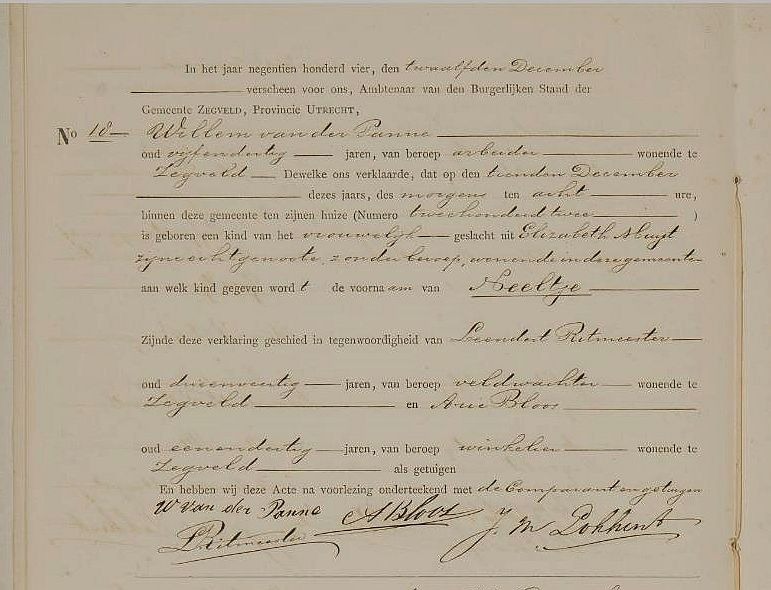 In het jaar negentien honderd vier, den twaalfden December
verscheen voor ons, Ambtenaar van den Burgerlijken Stand der
Gemeente ZEGVELD, Provincie UTRECHT,
No 18 Willem van der Panne
oud vijfendertig jaren, van beroep arbeider wonende te
Zegveld Dewelke ons verklaarde, dat op den tienden December
dezes jaars, des morgens ten acht ure,
binnen deze gemeente ten zijnen huize (Numero tweehonderd twee )
is geboren een kind van het vrouwelijk geslacht uit Elizabeth
zijne echtgenoote, zonder beroep, wonende in deze gemeente
aan welk kind gegeven word t de voorna am van Neeltje
Zijnde deze verklaring geschied in tegenwoordigheid van Leendert Ritmeester
oud drieenveertig jaren, van beroep veldwachter wonende te
Zegveld en Arie Bloos
oud eenendertig jaren, van beroep winkelier wonende te
Zegveld als getuigen
En hebben wij deze Acte na voorlezing onderteekend met de Comparant en getuigen
W van der Panne A Bloos J. M
L Ritmeester